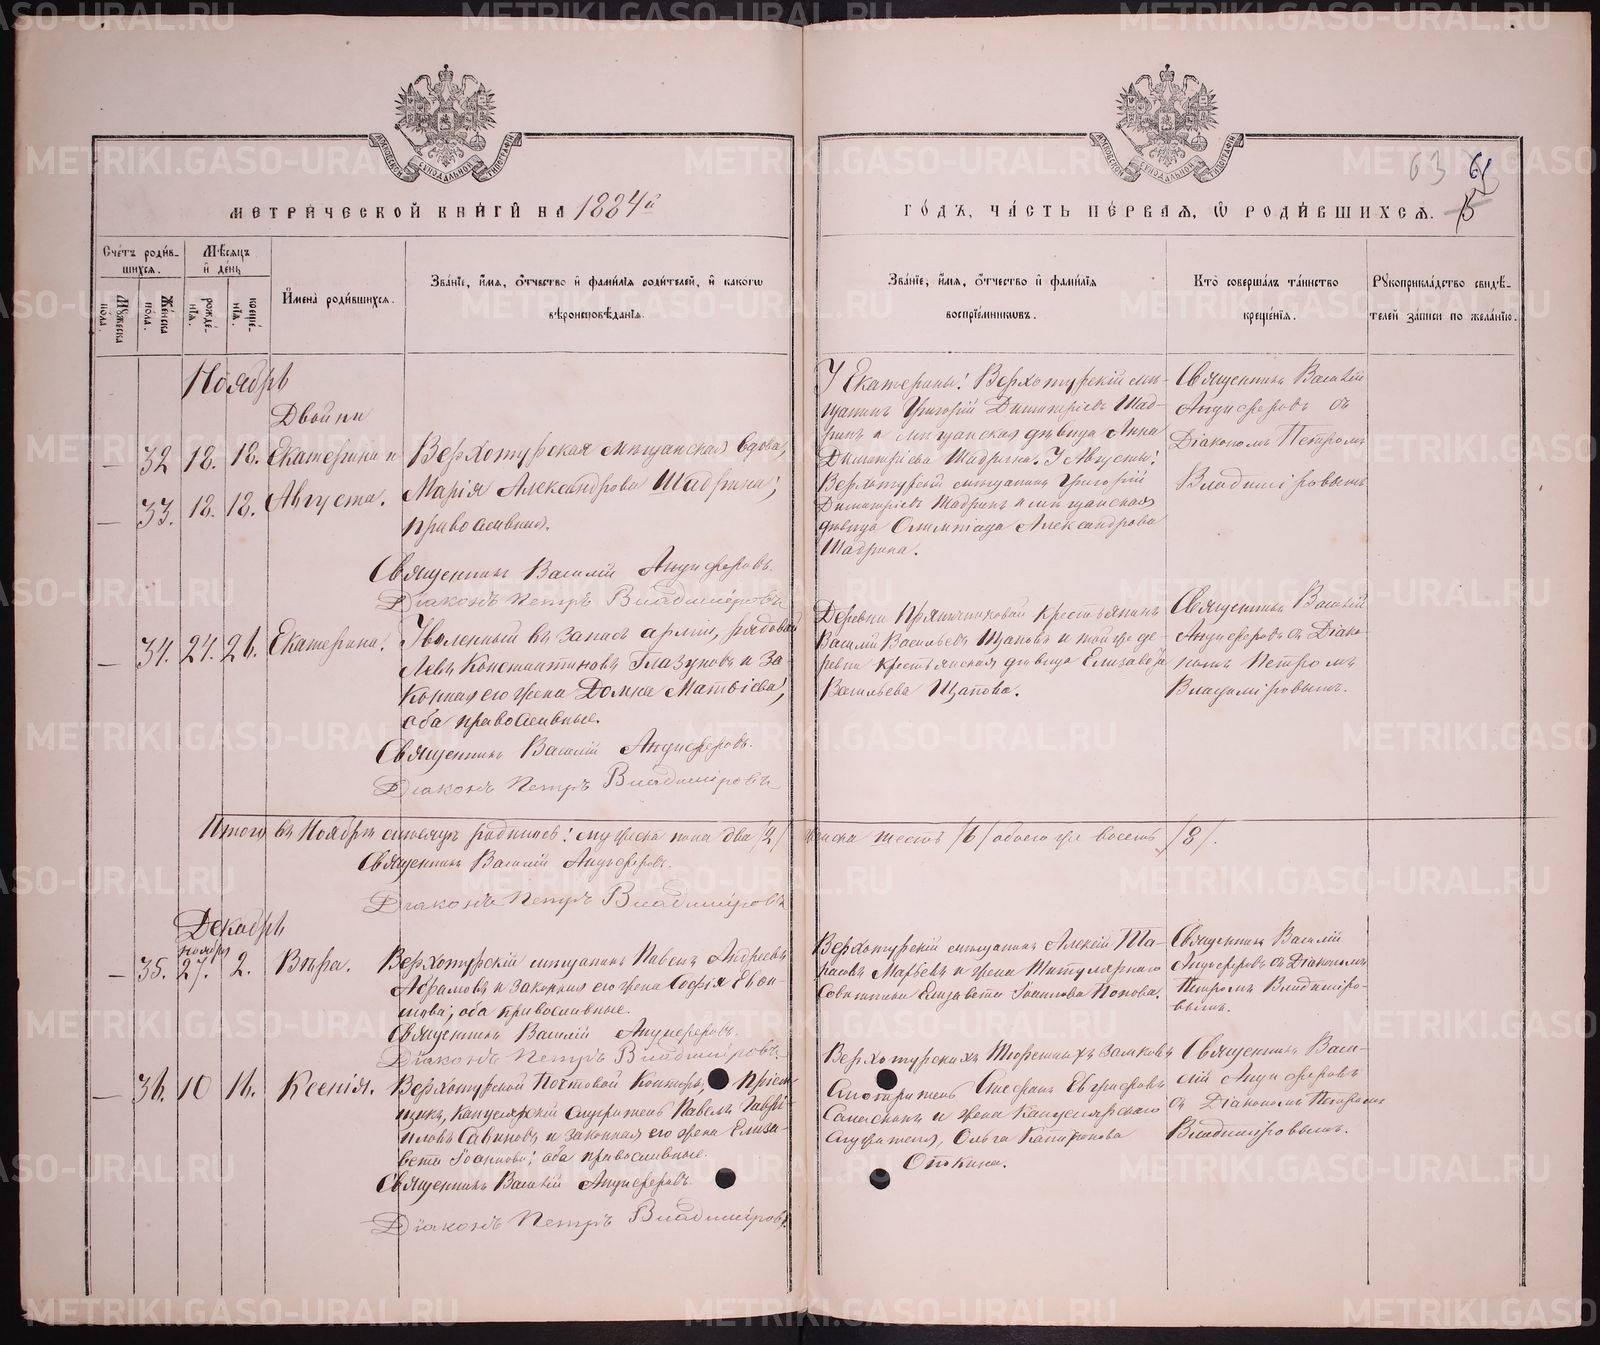 МЕТРИЧЕСКОЙ КНИГИ НА 1884й
ГОДЪ, ЧАСТЬ ПЕРВАЯ, Ѡ РОДИВШИХСЯ.
63
Счетъ родив-
шихся.
Мѣсяцъ
и день
Мужеска пола.
Женска пола.
рожде-
нія.
креще-
нія.
Имена родившихся.
Званіе, имя, отчество и фамилія родителей, и какогѡ
вѣроисповѣданія.
Званіе, имя, отчество и фамилія
воспріемниковъ.
Кто совершалъ таинство
крещенія.
Рукоприкладство свидѣ-
телей записи по желанію.
Ноябрь
Двойни
— 32 18. 18. Екатерина и
— 33. 18. 18. Августа.
Верхотурская мѣщанская вдова,
Марія Александрова Шадрина,
православная.
Священникъ Василій Анциферовъ.
Діаконъ Петръ Владиміровъ
У Екатерины: Верхотурскій мѣ-
щанинъ Григорій Димитріевъ Шад-
ринъ и мѣщанская дѣвица Анна
Димитріева Шадрина. У Августы:
Верхотурскій мѣщанинъ Григорій
Димитріевъ Шадринъ и мѣщанская
дѣвица Олимпіада Александрова
Шадрина.
Священникъ Василій
Анциферовъ съ
Діакономъ Петромъ
Владиміровымъ
— 34. 24. 26. Екатерина.
Уволенный въ запасъ арміи, рядовой
Левъ Константиновъ Глазуновъ и за-
конная его жена Домна Матвѣева,
оба православные.
Священникъ Василій Анциферовъ.
Діаконъ Петръ Владиміровъ
Деревни Прянишниковой крестьянинъ
Василій Васильевъ Щаповъ и той же де-
ревни крестьянская дѣвица Елизавета
Васильева Щапова.
Священникъ Василій
Анциферовъ съ Діако-
номъ Петромъ
Владиміровымъ.
Итого въ Ноябрѣ мѣсяцѣ родилось: мужеска пола два /2/ женска шесть /6/ обоего же восемь /8/.
Священникъ Василій Анциферовъ.
Діаконъ Петръ Владиміровъ
Декабрь
ноября
— 35. 27. 2. Вѣра.
Верхотурскій мѣщанинъ Павелъ Андреевъ
Абрамовъ и законная его жена Софія
оба православные.
Священникъ Василій Анциферовъ.
Діаконъ Петръ Владиміровъ
Верхотурскій мѣщанинъ Алексій Та-
расовъ и жена Титулярнаго
Совѣтника Елизавета Іоаннова Попова.
Священникъ Василій
Анциферовъ съ Діакономъ
Петромъ Владиміро-
вымъ.
— 36. 10 16. Ксенія.
Верхотурской Почтовой Конторы, Пріем-
щикъ, канцелярскій служитель Павелъ Гаврі-
иловъ Савиновъ и законная его жена Елиза-
вета Іоаннова; оба православные.
Священникъ Василій Анциферовъ
Діаконъ Петръ Владиміровъ.
Верхотурскихъ Тюремныхъ замковъ
Смотритель Стефанъ Евграфовъ
и жена Канцелярскаго
служителя, Ольга Капитонова
Откина.
Священникъ Васи-
лій Анциферовъ
съ Діакономъ Петромъ
Владиміровымъ.